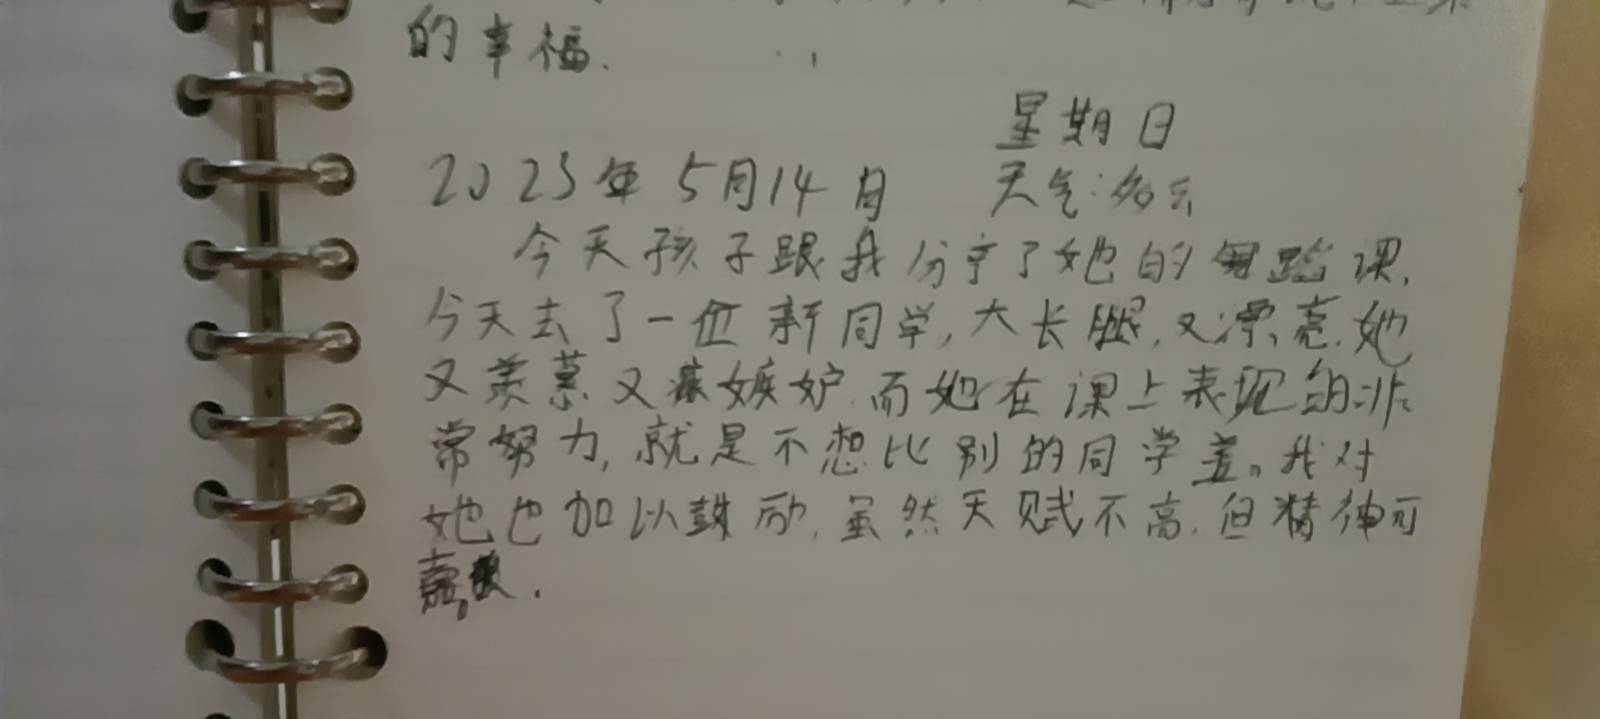 的幸福.
星期日
2023年5月14日 天气:多云
今天孩子跟我分享了她的舞蹈课,
今天去了一位新同学,大长腿,又漂亮.她
又羡慕又嫉妒.而她在课上表现的非
常努力,就是不想比别的同学差。我对
她也加以鼓励,虽然天赋不高,但精神可
嘉.